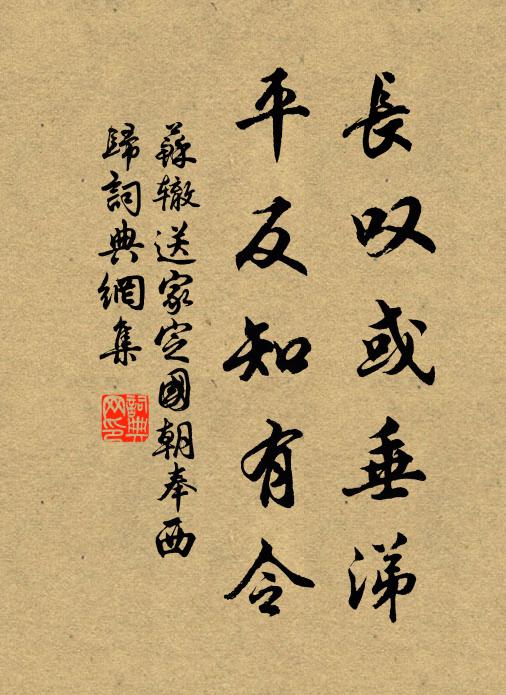 長叹或垂涕
平反知有令
蘇辙送家定國朝奉西
歸詞典網集
詞典
网印